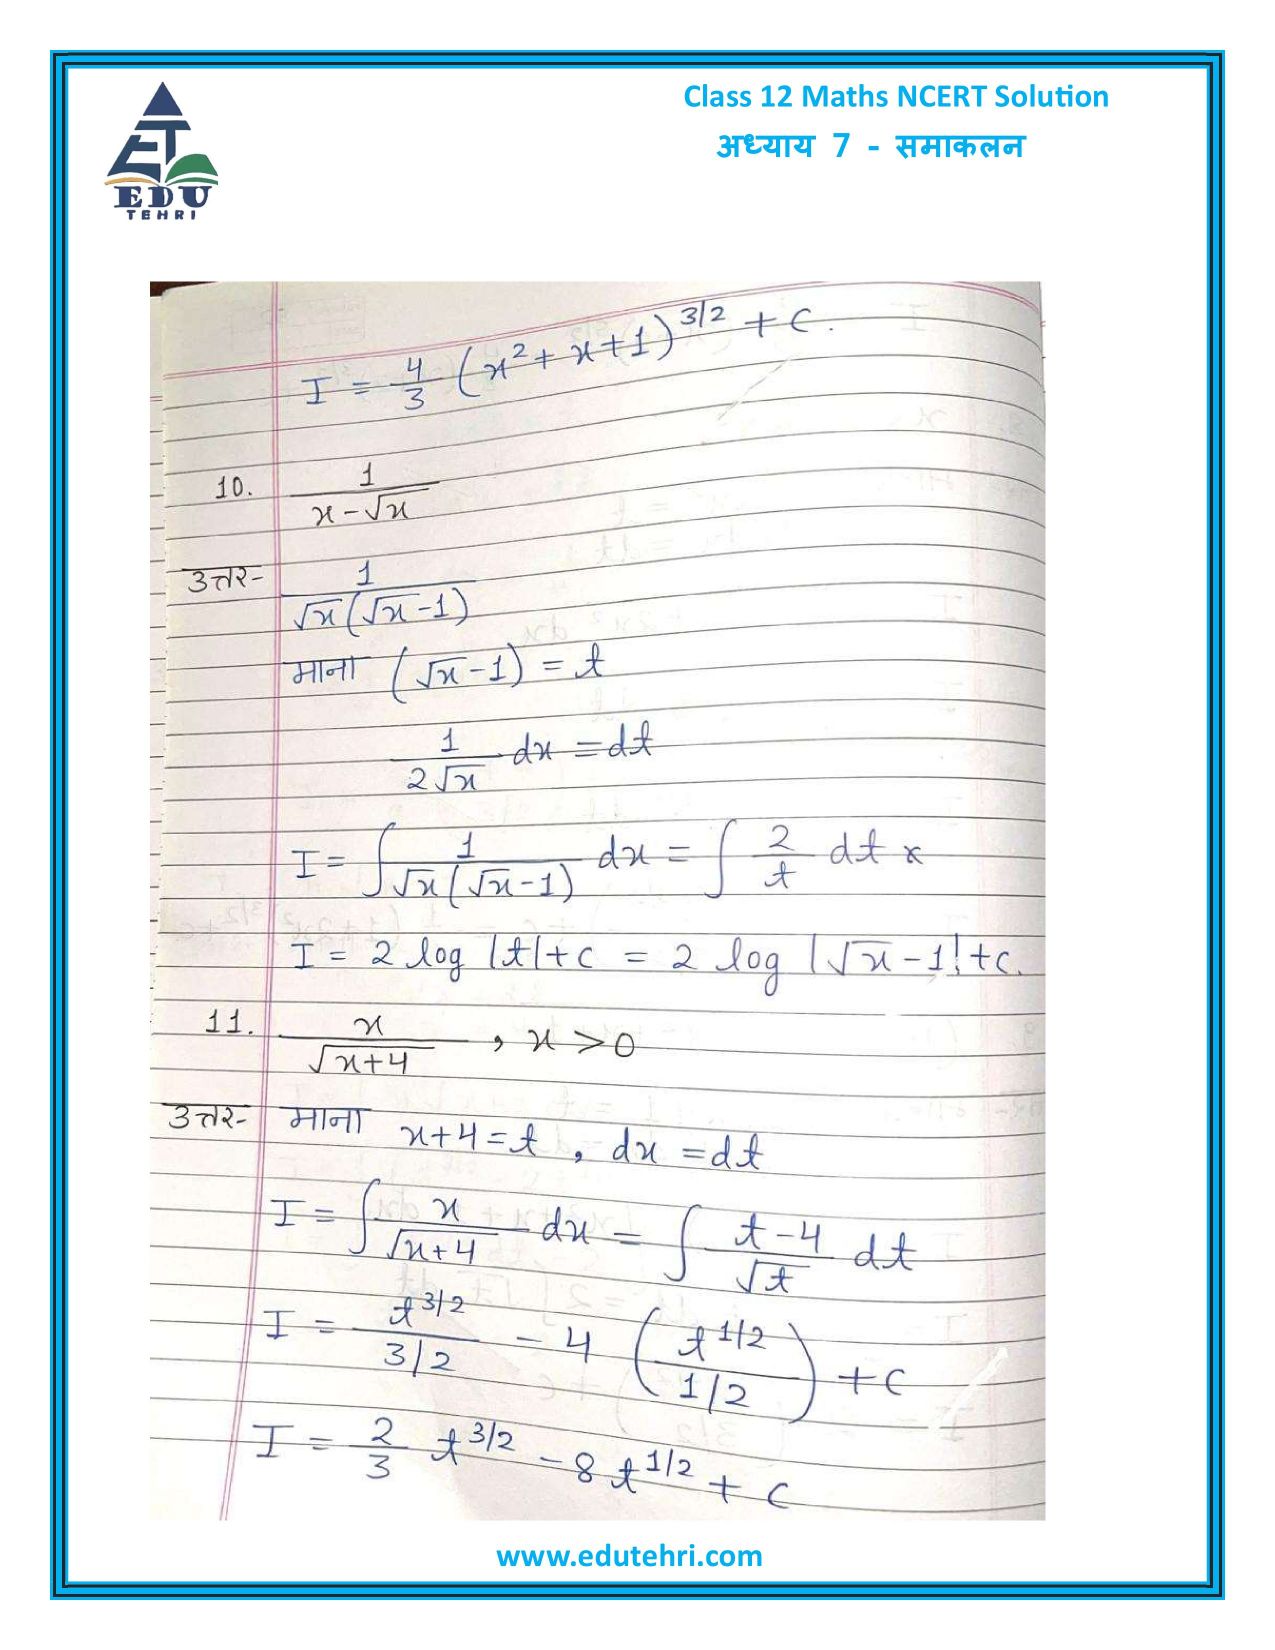 Class 12 Maths NCERT Solution
अध्याय 7 - समाकलन
ET
EDU
TEHRI
I = 4/3 (x² + x + 1)^3/2 + c.
10. 1/(x - √x)
उत्तर- 1/(√x(√x - 1))
माना (√x - 1) = t
1/(2√x) dx = dt
I = ∫ 1/(√x(√x - 1)) dx = ∫ 2/t dt x
I = 2 log |t| + c = 2 log |√x - 1| + c.
11. x/√(x+4) , x > 0
उत्तर- माना x + 4 = t , dx = dt
I = ∫ x/√(x+4) dx = ∫ (t - 4)/√t dt
I = t^3/2/(3/2) - 4 (t^1/2/(1/2)) + c
I = 2/3 t^3/2 - 8 t^1/2 + c
www.edutehri.com